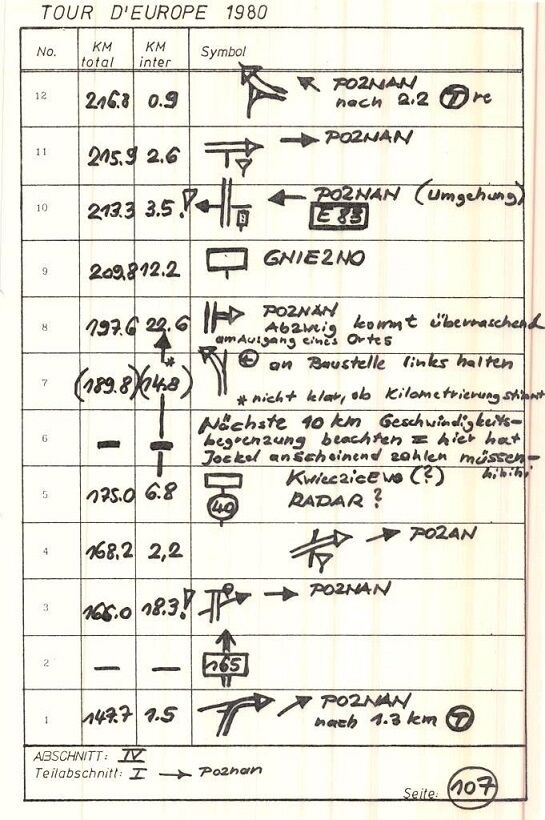 TOUR D'EUROPE 1980
No. KM total KM inter Symbol
12 216.8 0.9 POZNAN
nach 2.2 T re
11 215.9 2.6 POZNAN
10 213.3 3.5! POZNAN (Umgehung)
E 83
9 209.8 12.2 GNIEZNO
8 197.6 22.6 POZNAN
Abzweig kommt überraschend
am Ausgang eines Ortes
7 (189.8) (14.8)* an Baustelle links halten
* nicht klar, ob Kilometrierung stimmt
6 — — Nächste 10 km Geschwindigkeits-
begrenzung beachten = hier hat
Jockel anscheinend zahlen müssen-
hihihi
5 175.0 6.8 KWIECZICEWO (?)
40 RADAR?
4 168.2 2,2 POZAN
3 166.0 18.3! POZNAN
2 — — 165
1 147.7 1.5 POZNAN
nach 1.3 km T
ABSCHNITT: IV
Teilabschnitt: I → Poznan
Seite: 107